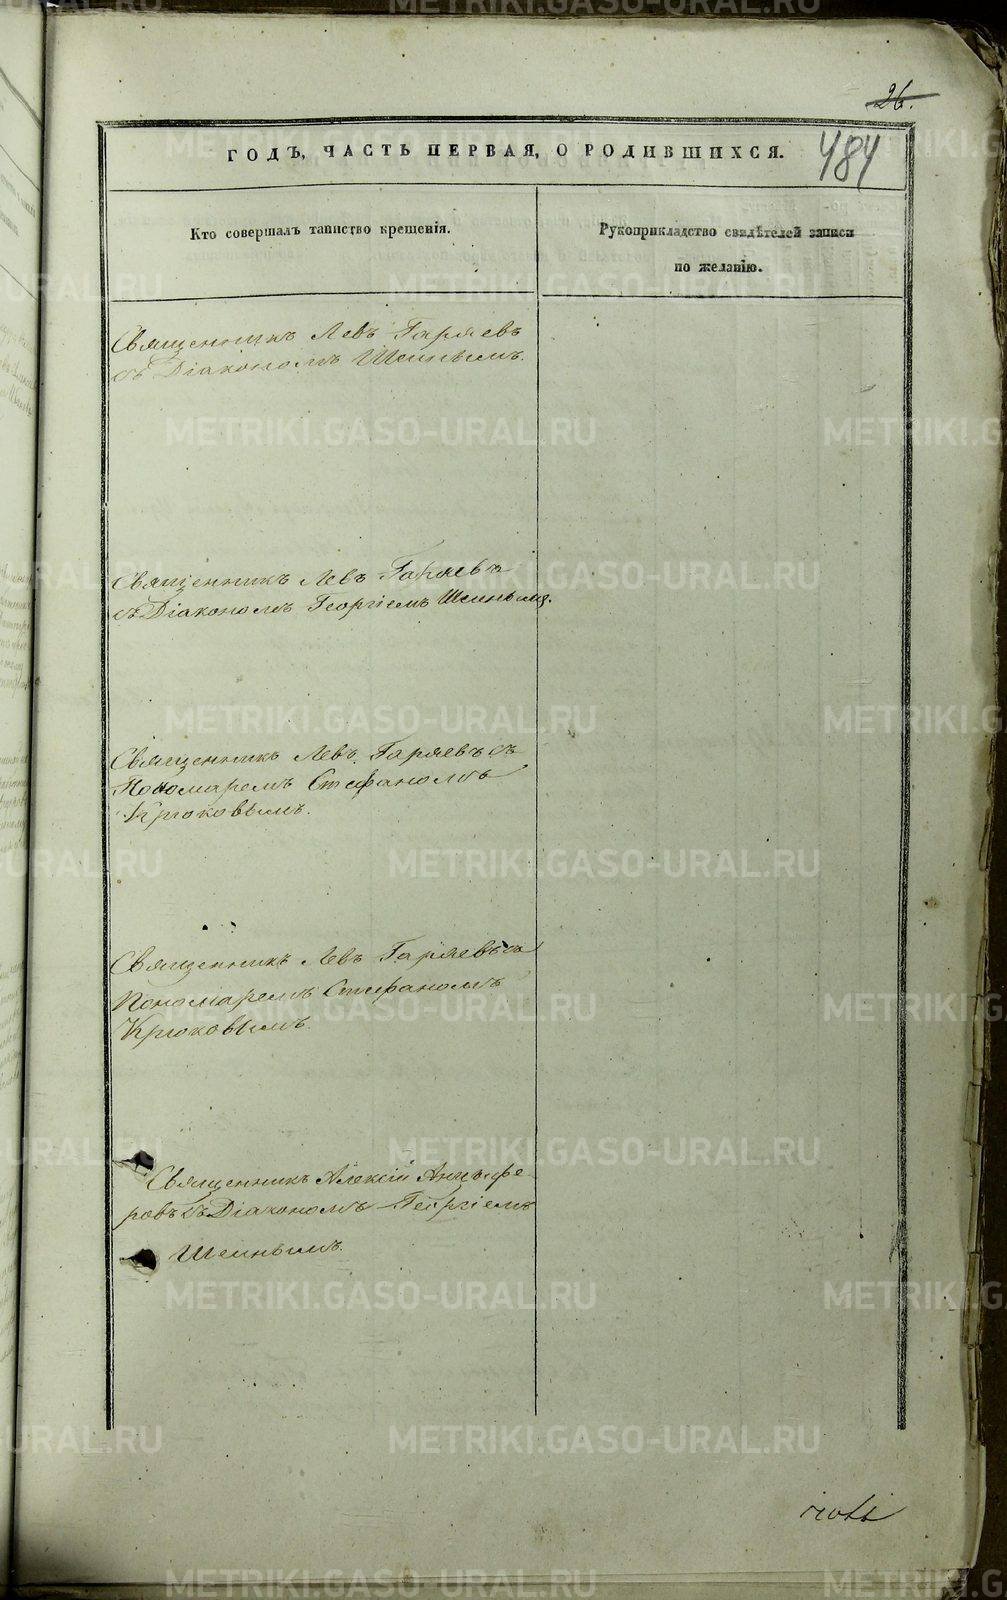 26.
484
ГОДЪ, ЧАСТЬ ПЕРВАЯ, О РОДИВШИХСЯ.
Кто совершалъ таинство крещенія.
Рукоприкладство свидѣтелей записи
по желанію.
Священникъ Левъ Гаряевъ
съ Діакономъ Шеинымъ.
Священникъ Левъ Гаряевъ
съ Діакономъ Георгіемъ Шеинымъ.
Священникъ Левъ Гаряевъ съ
Пономаремъ Стефаномъ
Крюковымъ.
Священникъ Левъ Гаряевъ съ
Пономаремъ Стефаномъ
Крюковымъ.
Священникъ Алексій Анцыфе-
ровъ съ Діакономъ Георгіемъ
Шеинымъ.
METRIKI.GASO-URAL.RU